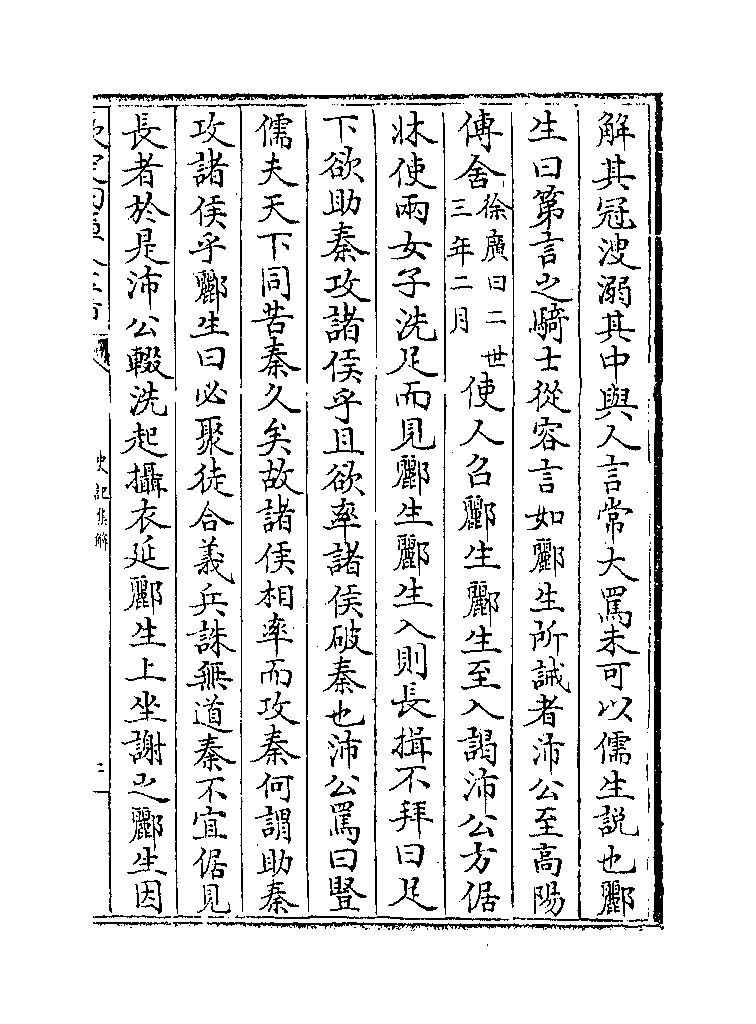 解其冠溲溺其中與人言常大罵未可以儒生說也酈
生曰第言之騎士從容言如酈生所誡者沛公至高陽
傳舍徐廣曰二世三年二月使人召酈生酈生至入謁沛公方倨
牀使兩女子洗足而見酈生酈生入則長揖不拜曰足
下欲助秦攻諸侯乎且欲率諸侯破秦也沛公罵曰豎
儒夫天下同苦秦久矣故諸侯相率而攻秦何謂助秦
攻諸侯乎酈生曰必聚徒合義兵誅無道秦不宜倨見
長者於是沛公輟洗起攝衣延酈生上坐謝之酈生因
史記集解